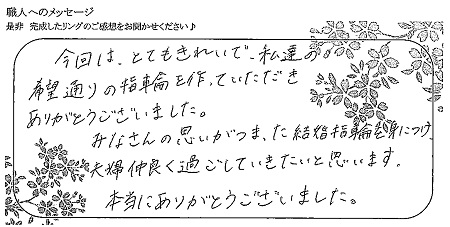 職人へのメッセージ
是非 完成したリングのご感想をお聞かせください♪
今回は、とてもきれいで、私達の
希望通りの指輪を作っていただき
ありがとうございました。
みなさんの思いがつまった結婚指輪を身につけ
夫婦仲良く過ごしていきたいと思います。
本当にありがとうございました。